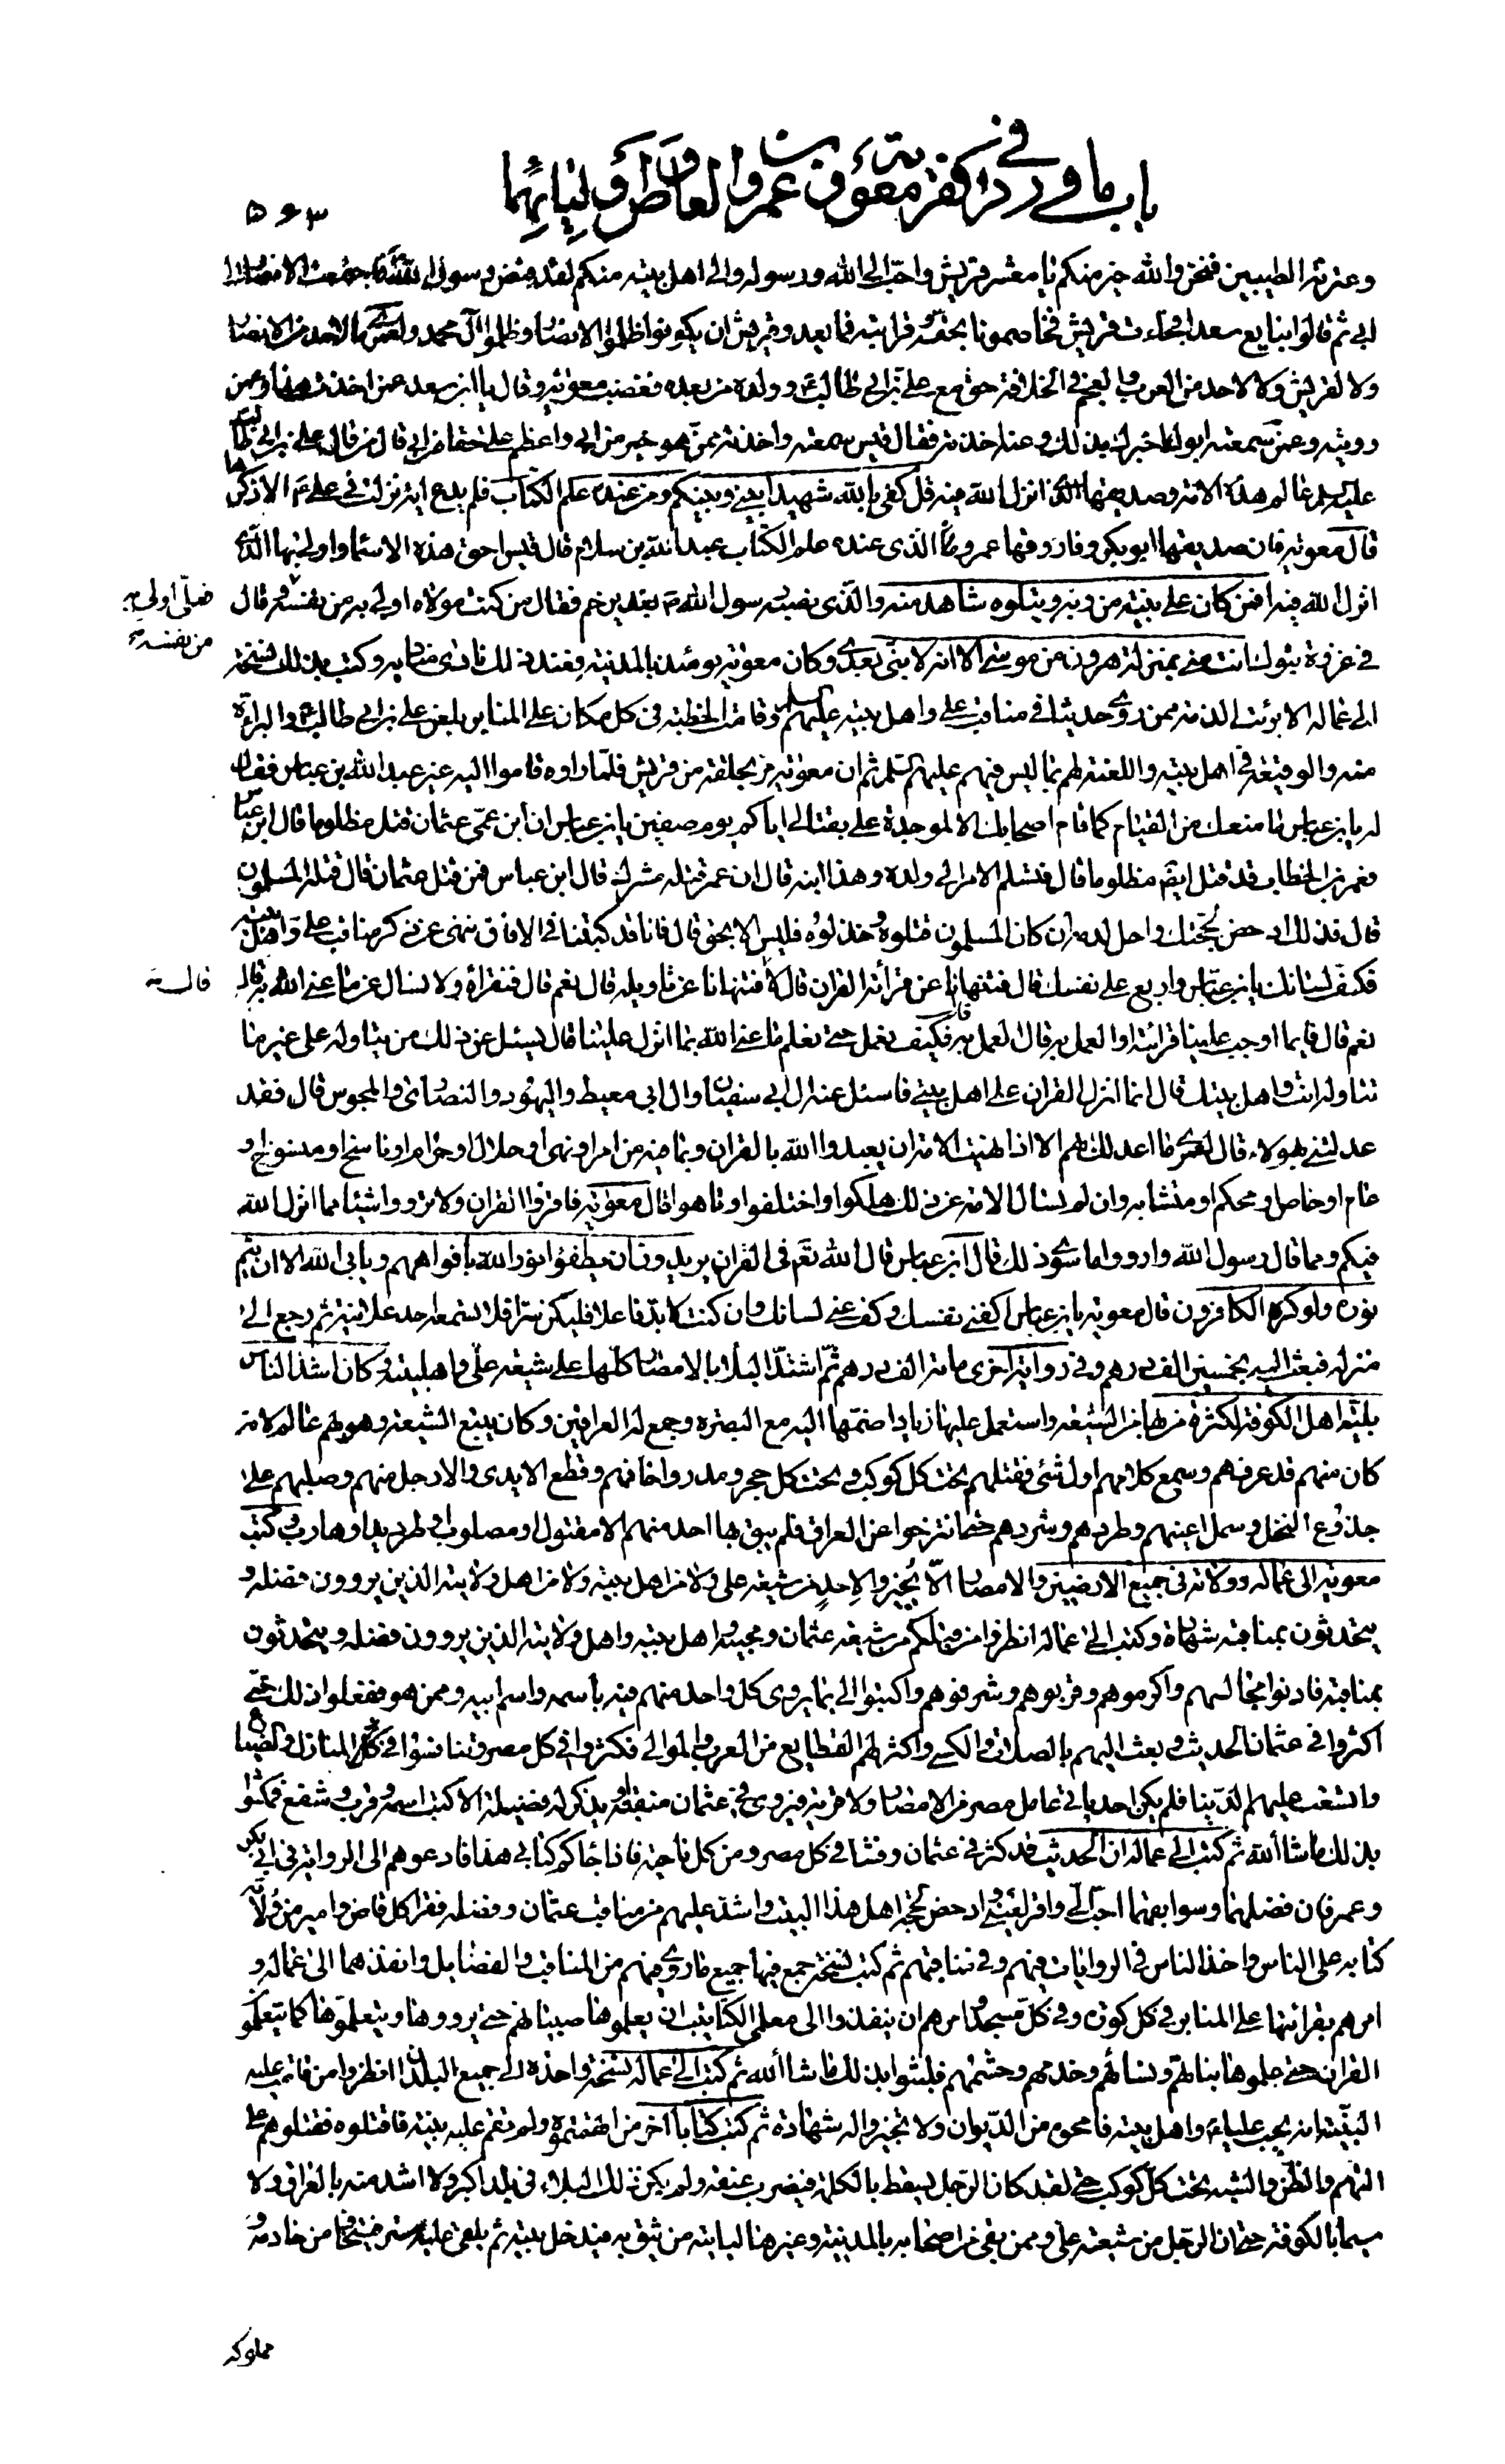 باب ما ورد في ذكر كفر معوية و عمرو العاص و اوليائهما
۵۶۳
وعترته الطيبين فنحن والله خير منكم يا معشر قريش واحبّ الى الله ورسوله والى اهل بيته منكم لقد قبض رسول الله فاجتمعت الانصار الى
ابي ثم قالوا نبايع سعدا فجاءت قريش فخاصمونا بحقه وقرابته فما يعدو قريش ان يكونوا ظلموا الانصار وظلموا آل محمد ولعمري ما لاحد من الانصار
ولا لقريش ولا لاحد من العرب والعجم في الخلافة حق مع علي بن ابي طالب ع وولده من بعده فغضب معوية وقال يا ابن سعد عمن اخذت هذا وعمن
رويته وعمن سمعته ابوك اخبرك بذلك وعنه اخذته فقال قيس سمعته واخذته ممن هو خير من ابي واعظم علي حقا من ابي قال من قال علي بن ابي طالب
عليه السلم عالم هذه الامة وصديقها الذي انزل الله فيه قل كفى بالله شهيدا بيني وبينكم ومن عنده علم الكتاب فلم يدع اية نزلت في علي ع الا ذكرها
قال معوية فان صديقها ابو بكر وفاروقها عمر والذي عنده علم الكتاب عبد الله بن سلام قال قيس احق هذه الاسماء واولى بها الذي
انزل الله فيه افمن كان على بينة من ربه ويتلوه شاهد منه والذي نصبه رسول الله ص بغدير خم فقال من كنت مولاه اولى به من نفسه وقال
فعلي اولى به
من نفسه
في غزوة تبوك انت مني بمنزلة هرون من موسى الا انه لا نبي بعدي وكان معوية يومئذ بالمدينة فعند ذلك نادى مناديه وكتب بذلك نسخة
الى عماله الا برئت الذمة ممن روى حديثا في مناقب علي واهل بيته عليهم السلم وقامت الخطبة في كل مكان على المنابر بلعن علي بن ابي طالب ع والبراءة
منه والوقيعة في اهل بيته واللعنة لهم بما ليس فيهم عليهم السلم ثم ان معوية مر بحلقة من قريش فلما راوه قاموا اليه غير عبد الله بن عباس فقال
له يا ابن عباس ما منعك من القيام كما قام اصحابك الا لموجدة علي بقتالي اياكم يوم صفين يا ابن عباس ان ابن عمي عثمان قتل مظلوما قال ابن عباس
فعمر بن الخطاب قد قتل ايضا مظلوما قال فتسلم الامر الى ولده وهذا ابنه قال ان عمر قتله مشرك قال ابن عباس فمن قتل عثمان قال قتله المسلمون
قال فذلك ادحض لحجتك واحل لدمه ان كان المسلمون قتلوه وخذلوه فليس الا بحق قال فانا قد كتبنا في الافاق ننهى عن ذكر مناقب علي واهل بيته
فكف لسانك يا ابن عباس واربع على نفسك قال فتنهانا عن قرائة القران قال لا قال فتنهانا عن تاويله قال نعم قال فنقرأه ولا نسال عن ما عنى الله به قال
قال
نعم قال فايما اوجب علينا قرائته او العمل به قال العمل به قال فكيف نعمل حتى نعلم ما عنى الله بما انزل علينا قال يسئل عن ذلك من يتاوله على غير ما
تتاوله انت واهل بيتك قال انما انزل القران على اهل بيتي فاسئل عنه ال ابي سفيان وال ابي معيط واليهود والنصارى والمجوس قال فقد
عدلتني بهؤلاء قال لعمري ما اعدلك بهم الا اذا نهيت الامة ان يعبدوا الله بالقران وبما فيه من امر او نهي او حلال او حرام او ناسخ او منسوخ او
عام او خاص او محكم او متشابه وان لم تسال الامة عن ذلك هلكوا واختلفوا وتاهوا قال معوية فاقرؤا القران ولا ترووا شيئا مما انزل الله
فيكم ومما قال رسول الله وارووا ما سوى ذلك قال ابن عباس قال الله تعم في القران يريدون ان يطفؤا نور الله بافواههم ويابى الله الا ان يتم
نوره ولو كره الكافرون قال معوية يا ابن عباس اكفني نفسك وكف عني لسانك وان كنت لا بد فاعلا فليكن سرا فلا تسمعه احد علانية ثم رجع الى
منزله فبعث اليه بخمسين الف درهم وفي رواية اخرى مائة الف درهم ثم اشتد البلاء بالامصار كلها على شيعة علي واهل بيته وكان اشد الناس
بلية اهل الكوفة لكثرة من بها من الشيعة واستعمل عليها زيادا ضمها اليه مع البصرة وجمع له العراقين وكان يتبع الشيعة وهو بهم عالم لانه
كان منهم قد عرفهم وسمع كلامهم اول شئ فقتلهم تحت كل كوكب وتحت كل حجر ومدر واخافهم وقطع الايدي والارجل منهم وصلبهم على
جذوع النخل وسمل اعينهم وطردهم وشردهم حتى انتزحوا عن العراق فلم يبق بها احد منهم الا مقتول او مصلوب او طريد او هارب وكتب
معوية الى عماله وولاته في جميع الارضين والامصار الا يجيزوا لاحد من شيعة علي ولا من اهل بيته ولا من اهل ولايته الذين يروون فضله و
يتحدثون بمناقبه شهادة وكتب الى عماله انظروا من قبلكم من شيعة عثمان ومحبيه واهل بيته واهل ولايته الذين يروون فضله ويتحدثون
بمناقبه فادنوا مجالسهم واكرموهم وقربوهم وشرفوهم واكتبوا الي بما يروي كل واحد منهم فيه باسمه واسم ابيه وممن هو ففعلوا ذلك حتى
اكثروا في عثمان الحديث وبعث اليهم بالصلات والكسى واكثر لهم القطايع من العرب والموالي فكثروا في كل مصر وتنافسوا في المنازل والضياع
واتسعت عليهم الدنيا فلم يكن احد ياتي عامل مصر من الامصار ولا قرية فيروي في عثمان منقبة او يذكر له فضيلة الا كتب اسمه وقرب وشفع فمكثوا
بذلك ما شا الله ثم كتب الى عماله ان الحديث قد كثر في عثمان وفشا في كل مصر ومن كل ناحية فاذا جاكم كتابي هذا فادعوهم الى الرواية في ابي بكر
وعمر فان فضلهما وسوابقهما احب الي واقر لعيني وادحض لحجة اهل هذا البيت واشد عليهم من مناقب عثمان وفضله فقرا كل قاض وامير من ولاته
كتابه على الناس واخذ الناس في الروايات فيهم وفي مناقبهم ثم كتب نسخة جمع فيها جميع ما روي فيهم من المناقب والفضايل وانفذهما الى عماله و
امرهم بقرائتها على المنابر في كل كورة وفي كل مسجد وامرهم ان ينفذوا الى معلمي الكتاتيب ان يعلموها صبيانهم حتى يرووها ويتعلموها كما يتعلمون
القران حتى علموها بناتهم ونسائهم وخدمهم وحشمهم فلبثوا بذلك ما شا الله ثم كتب الى عماله نسخة واحدة الى جميع البلدان انظروا من قامت عليه
البينة انه يحب عليا ع واهل بيته فامحوه من الديوان ولا تجيزوا له شهادة ثم كتب كتابا اخر من اتهمتموه ولم تقم عليه بينة فاقتلوه فقتلوهم على
التهم والظن والشبه تحت كل كوكب حتى لقد كان الرجل يسقط بالكلمة فيضرب عنقه ولم يكن ذلك البلاء في بلد اكبر ولا اشد منه بالعراق ولا
سيما بالكوفة حتى ان الرجل من شيعة علي وممن بقي من اصحابه بالمدينة وغيرها لياتيه من يثق به فيدخل بيته ثم يلقي عليه ستره فيخاف من خادمه و
مملوكه